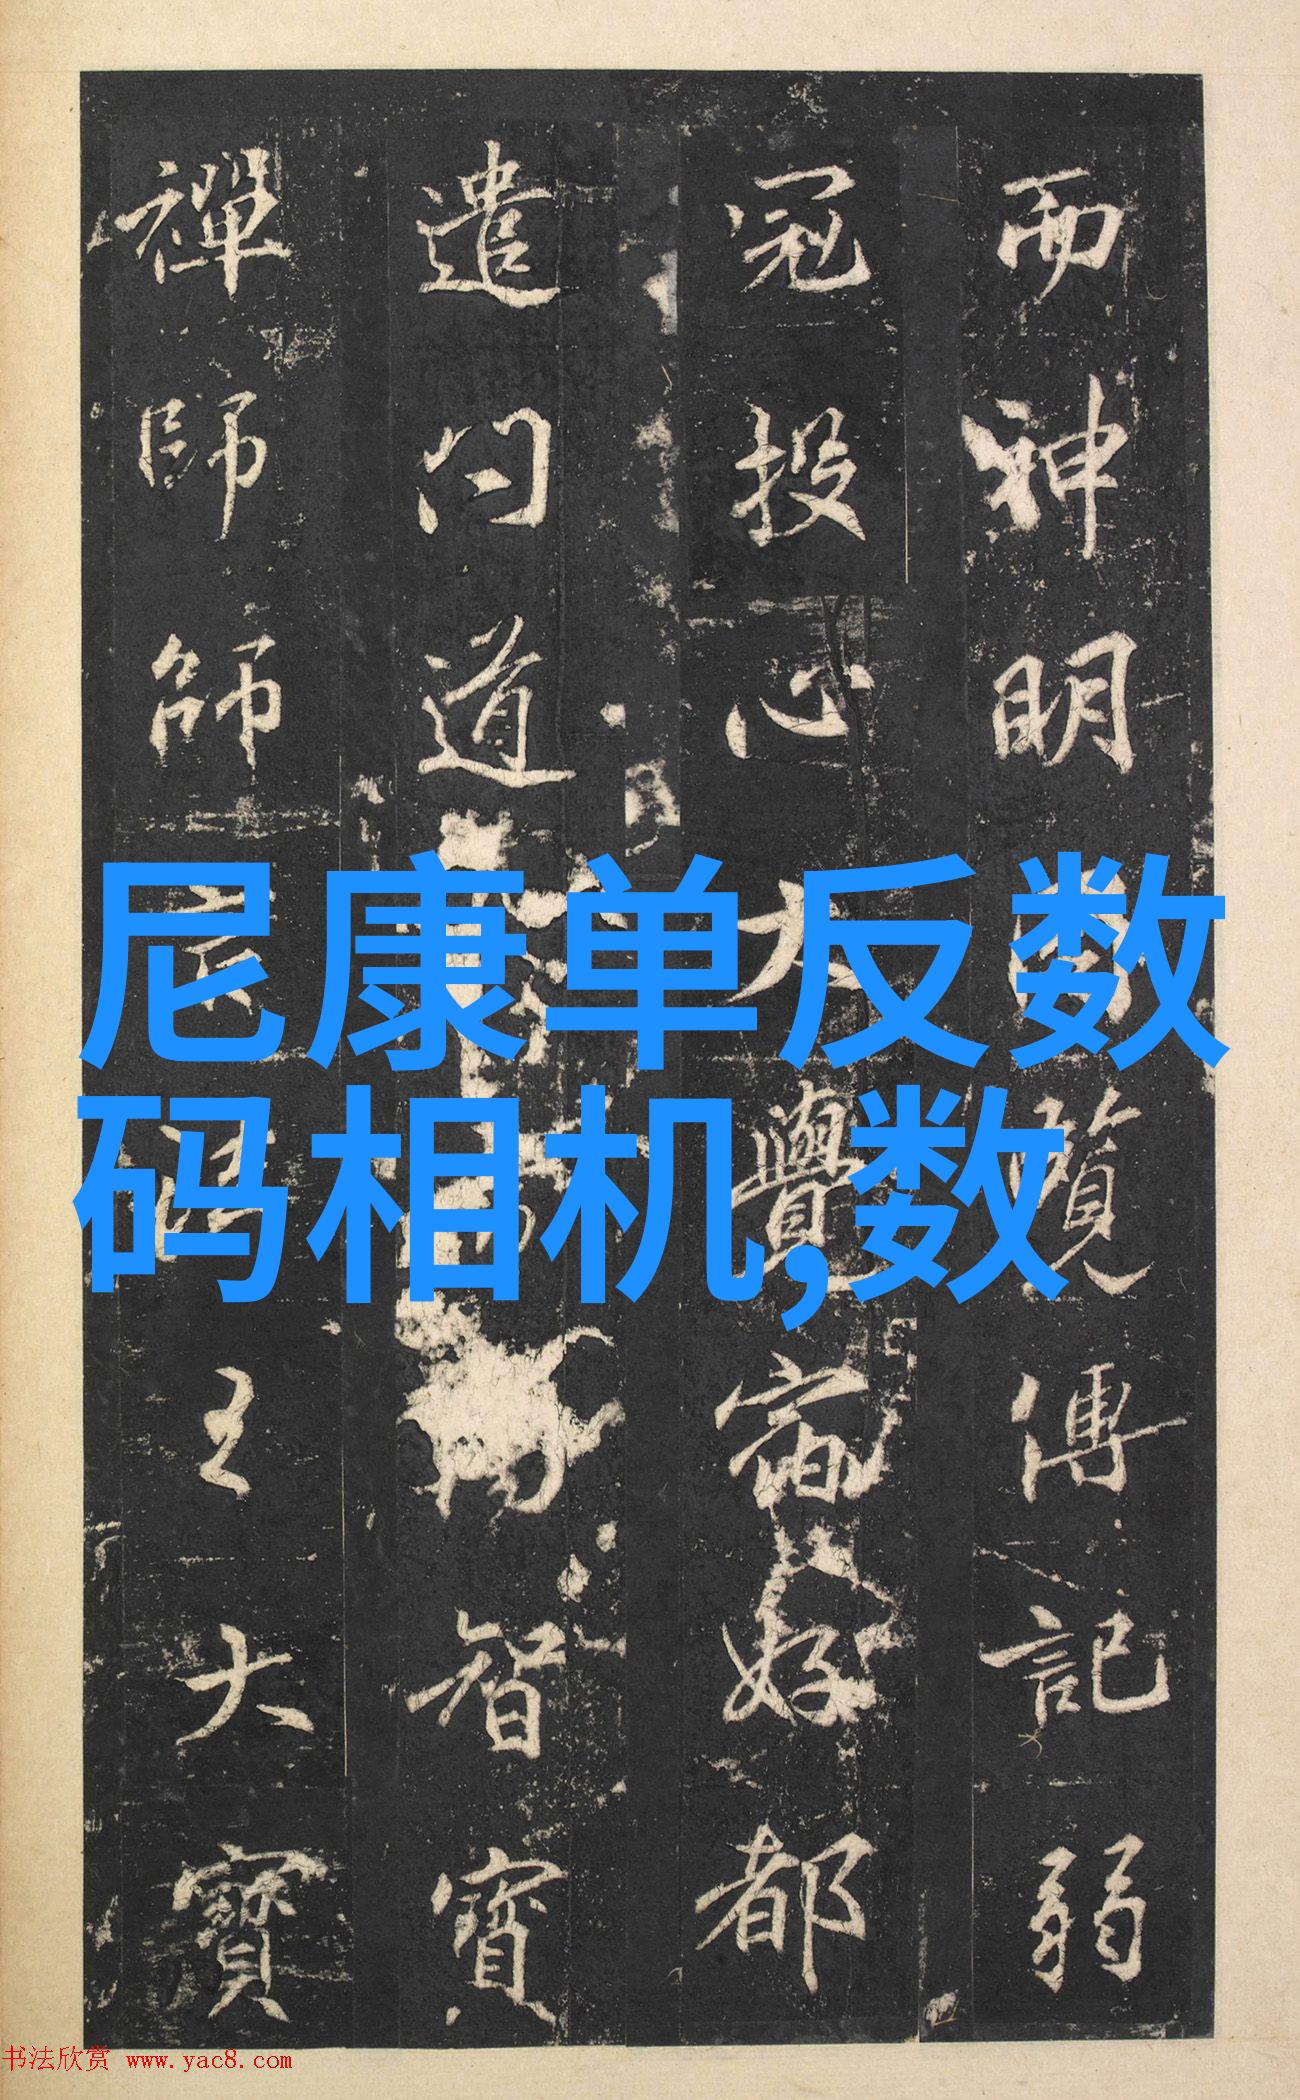 而神明覽傳記弱
冠投心大覺宿好都
遣問道智寶
禪師師大寶
尼康单反数
码相机,数
书法欣赏 www.yac8.com